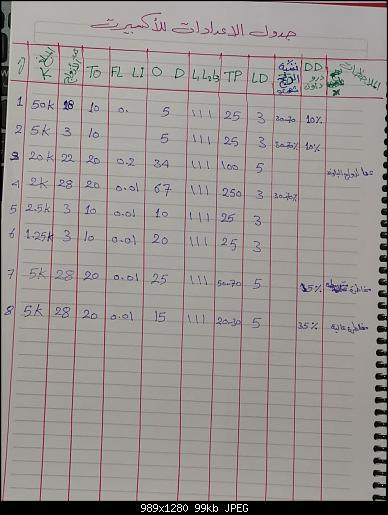 جدول الاعدادات للأكسبيرت
TO FL LI O D TP LD نسبة DD
1 50k 18 10 0. 5 111 25 3 30-70 10%
2 5k 3 10 5 111 25 3 30-70% 10%
3 20k 22 20 0.2 34 111 100 5
4 2k 28 20 0.01 67 111 250 3 30-70%
5 2.5k 3 10 0.01 10 111 25 3
6 1.25k 3 10 0.01 20 111 25 3
7 5k 28 20 0.01 25 111 50-70 5 15%
8 5k 28 20 0.01 15 111 20-30 5 35% مخاطرة عالية
989x1280 99kb JPEG